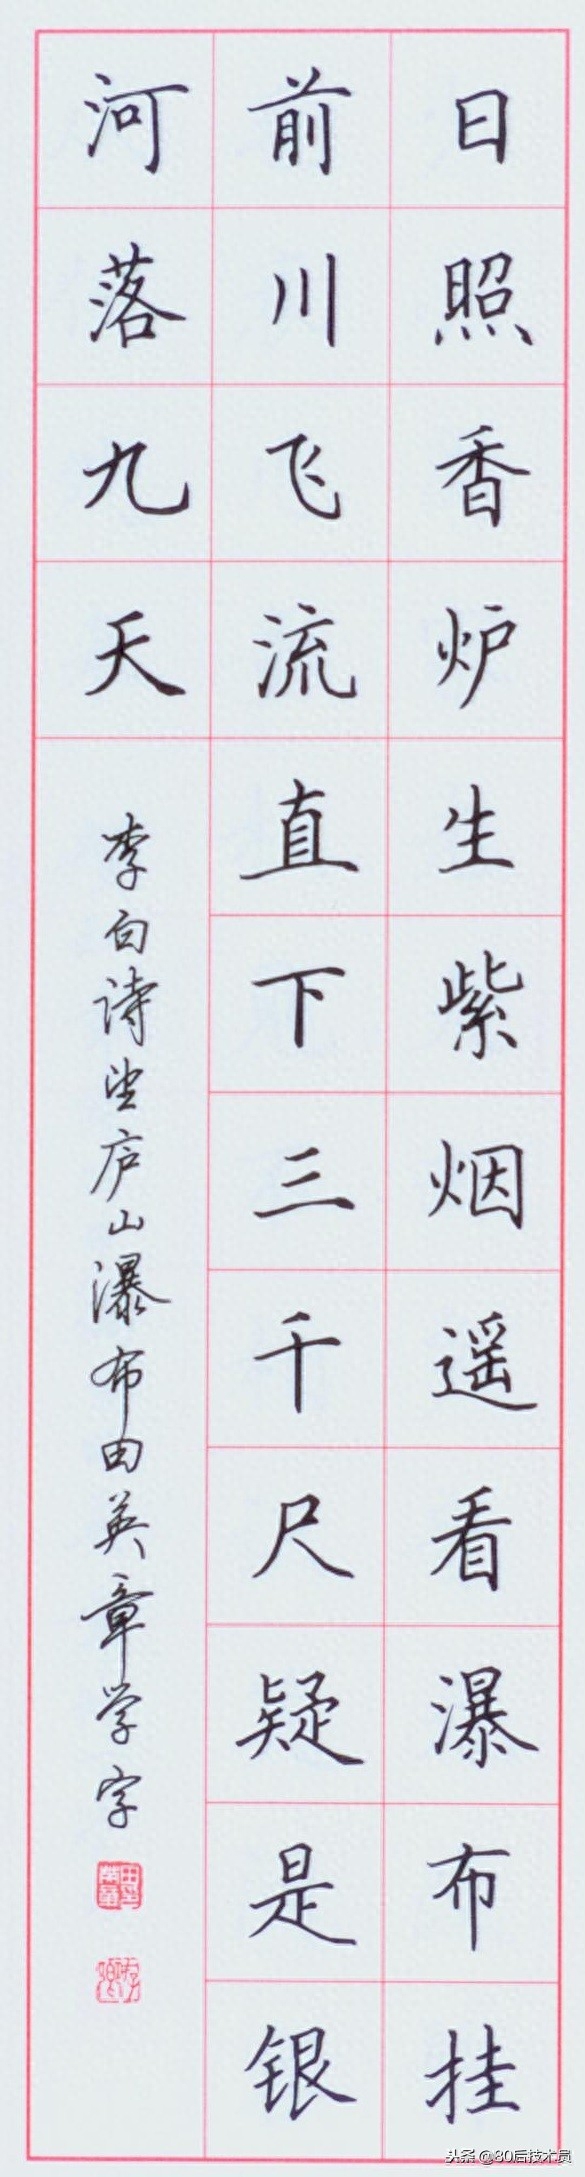 日照香炉生紫烟遥看瀑布挂
前川飞流直下三千尺疑是银
河落九天
李白诗望庐山瀑布田英章学字
头条 @80后技术员